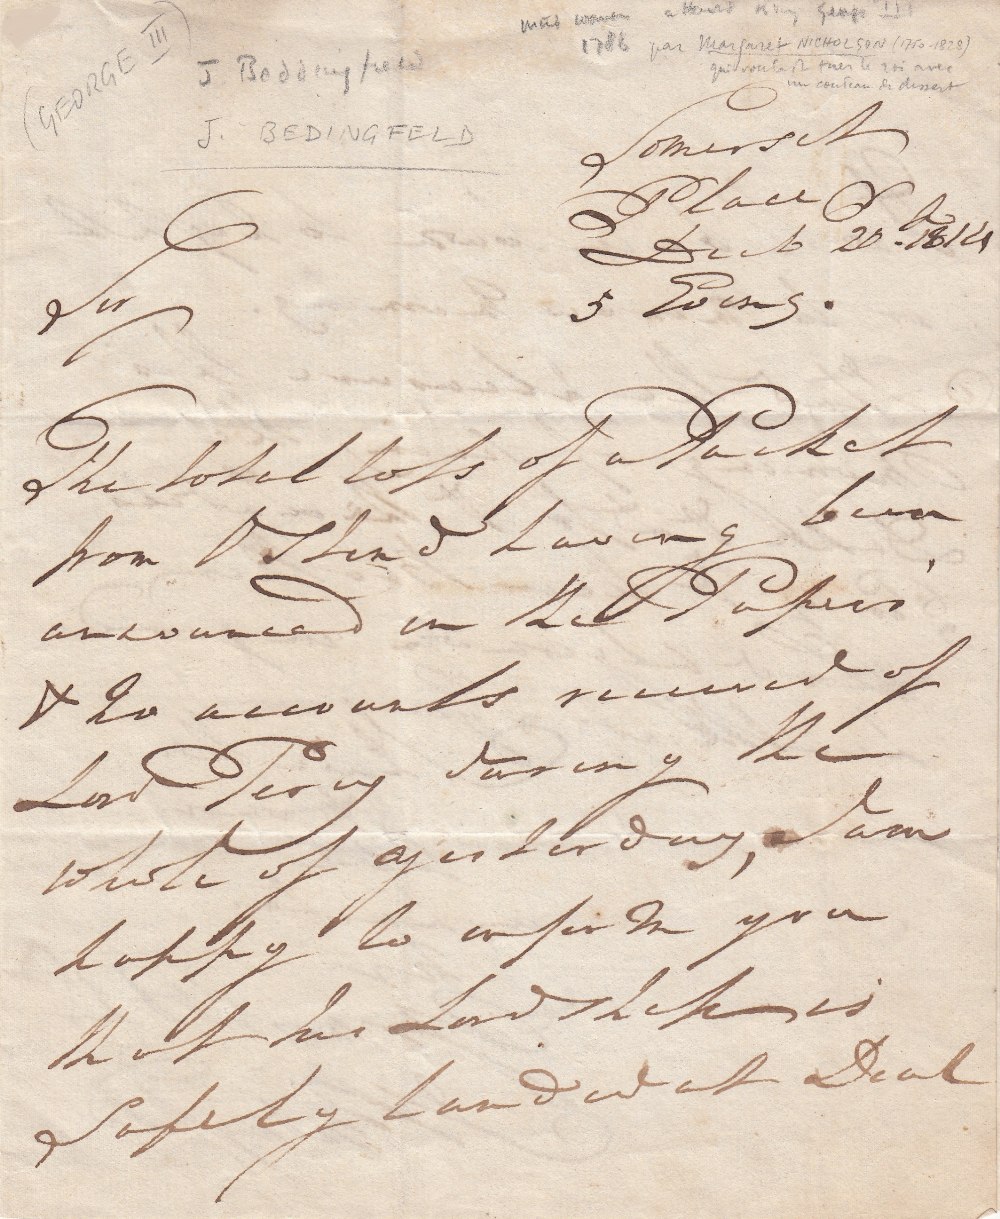 (GEORGE III)
J Beddingfield
J. BEDINGFELD
mad woman attend King George III
1786 par Margaret NICHOLSON (1750-1828)
qui voulait tuer le roi avec
un couteau de dessert
Somerset
Place
Dec 20 1814
5 Eveng.
Sir
The total loss of a Packet
from Ostend having been
announced in the Papers
& no accounts received of
Lord Percy during the
whole of yesterday, I am
happy to inform you
that his Lordship is
safely landed at Deal